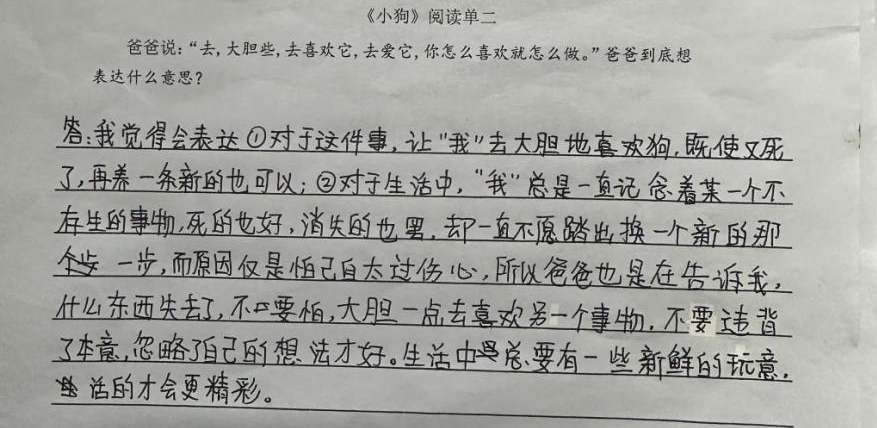 《小狗》阅读单二
爸爸说:“去,大胆些,去喜欢它,去爱它,你怎么喜欢就怎么做。”爸爸到底想
表达什么意思?
答:我觉得会表达①对于这件事,让“我”去大胆地喜欢狗,既使又死
了,再养一条新的也可以;②对于生活中,“我”总是一直记念着某一个不
存生的事物,死的也好,消失的也罢,却一直不愿踏出换一个新的那
一步,而原因仅是怕己自太过伤心,所以爸爸也是在告诉我,
什么东西失去了,不要怕,大胆一点去喜欢另一个事物,不要违背
了本意,忽略了自己的想法才好。生活中总要有一些新鲜的玩意,
活的才会更精彩。